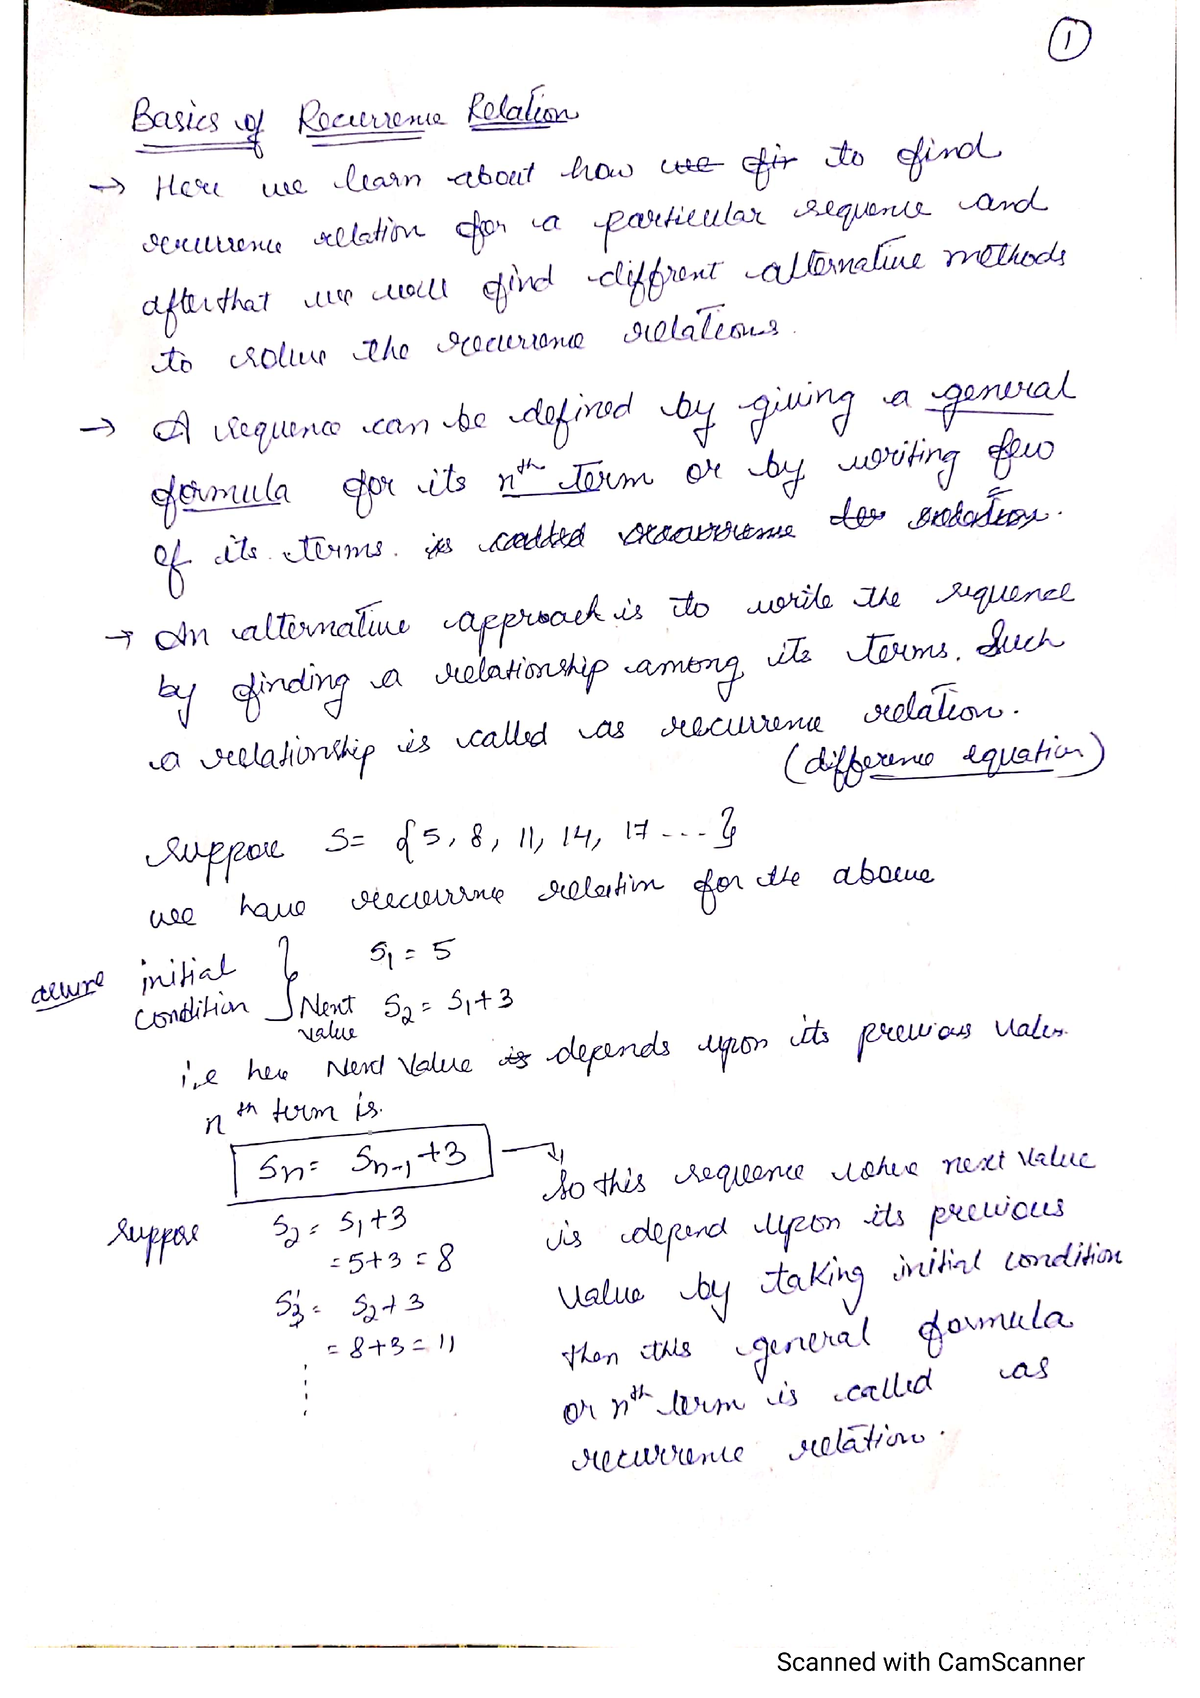 1
Basics of Recurrence Relation
→ Here we learn about how we fir to find
recurrence relation for a particular sequence and
after that we will find diffrent alternative methods
to solve the recurrence relations.
→ A sequence can be defined by giving a general
formula for its nth term or by writing few
of its terms. is called recurrence relation.
→ An alternative approach is to write the sequence
by finding a relationship among its terms. Such
a relationship is called as recurrence relation.
(difference equation)
Suppose S = {5, 8, 11, 14, 17 ---}
we have recurrence relation for the above
initial condition } S1 = 5
Next value S2 = S1+3
i.e here Next Value is depends upon its previous value.
nth term is.
Sn = Sn-1 +3 →
Suppose S2 = S1+3
= 5+3 = 8
S3 = S2+3
= 8+3 = 11
So this sequence where next value
is depend upon its previous
value by taking initial condition
then this general formula
or nth term is called as
recurrence relation.
Scanned with CamScanner